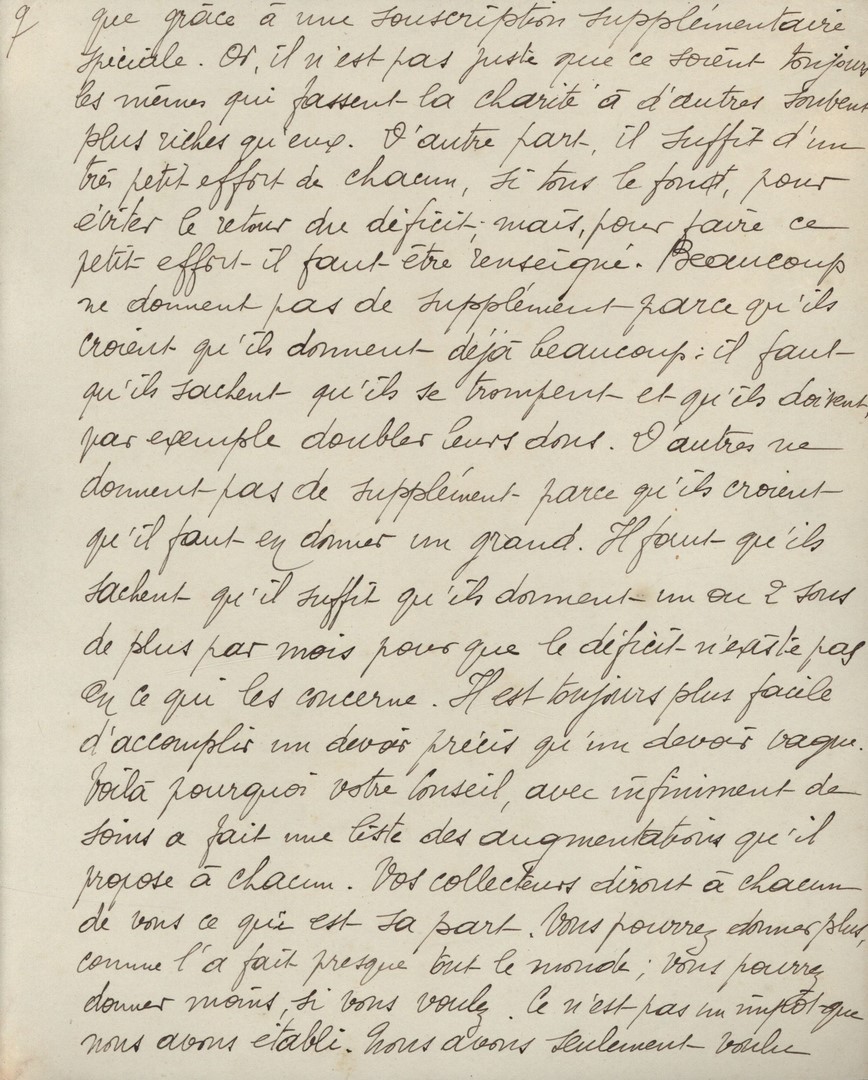 9
que grâce à une souscription supplémentaire
spéciale. Or, il n'est pas juste que ce soient toujours
les mêmes qui fassent la charité à d'autres souvent
plus riches qu'eux. D'autre part, il suffit d'un
très petit effort de chacun, si tous le font, pour
éviter le retour du déficit; mais, pour faire ce
petit effort il faut être renseigné. Beaucoup
ne donnent pas de supplément parce qu'ils
croient qu'ils donnent déjà beaucoup: il faut
qu'ils sachent qu'ils se trompent et qu'ils doivent,
par exemple doubler leurs dons. D'autres ne
donnent pas de supplément parce qu'ils croient
qu'il faut en donner un grand. Il faut qu'ils
sachent qu'il suffit qu'ils donnent un ou 2 sous
de plus par mois pour que le déficit n'existe pas
en ce qui les concerne. Il est toujours plus facile
d'accomplir un devoir précis qu'un devoir vague.
Voilà pourquoi votre Conseil, avec infiniment de
soins a fait une liste des augmentations qu'il
propose à chacun. Vos collecteurs diront à chacun
de vous ce qui est sa part. Vous pourrez donner plus,
comme l'a fait presque tout le monde; vous pourrez
donner moins, si vous voulez. Ce n'est pas un impôt que
nous avons établi. Nous avons seulement voulu